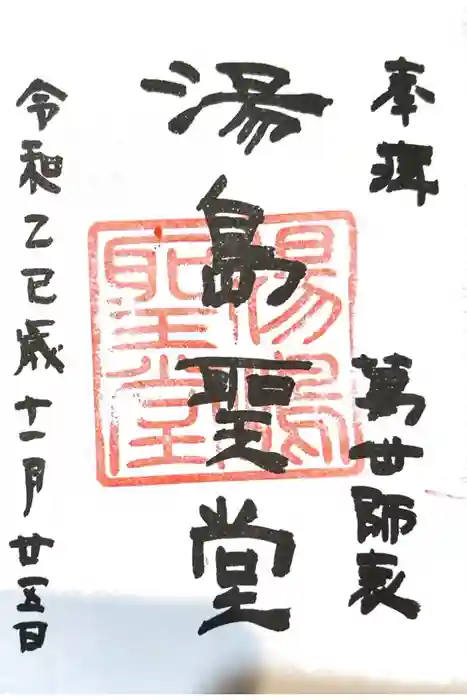 奉拜　萬世師表
湯島聖堂
湯島
聖堂
令和乙巳歳十一月廿五日